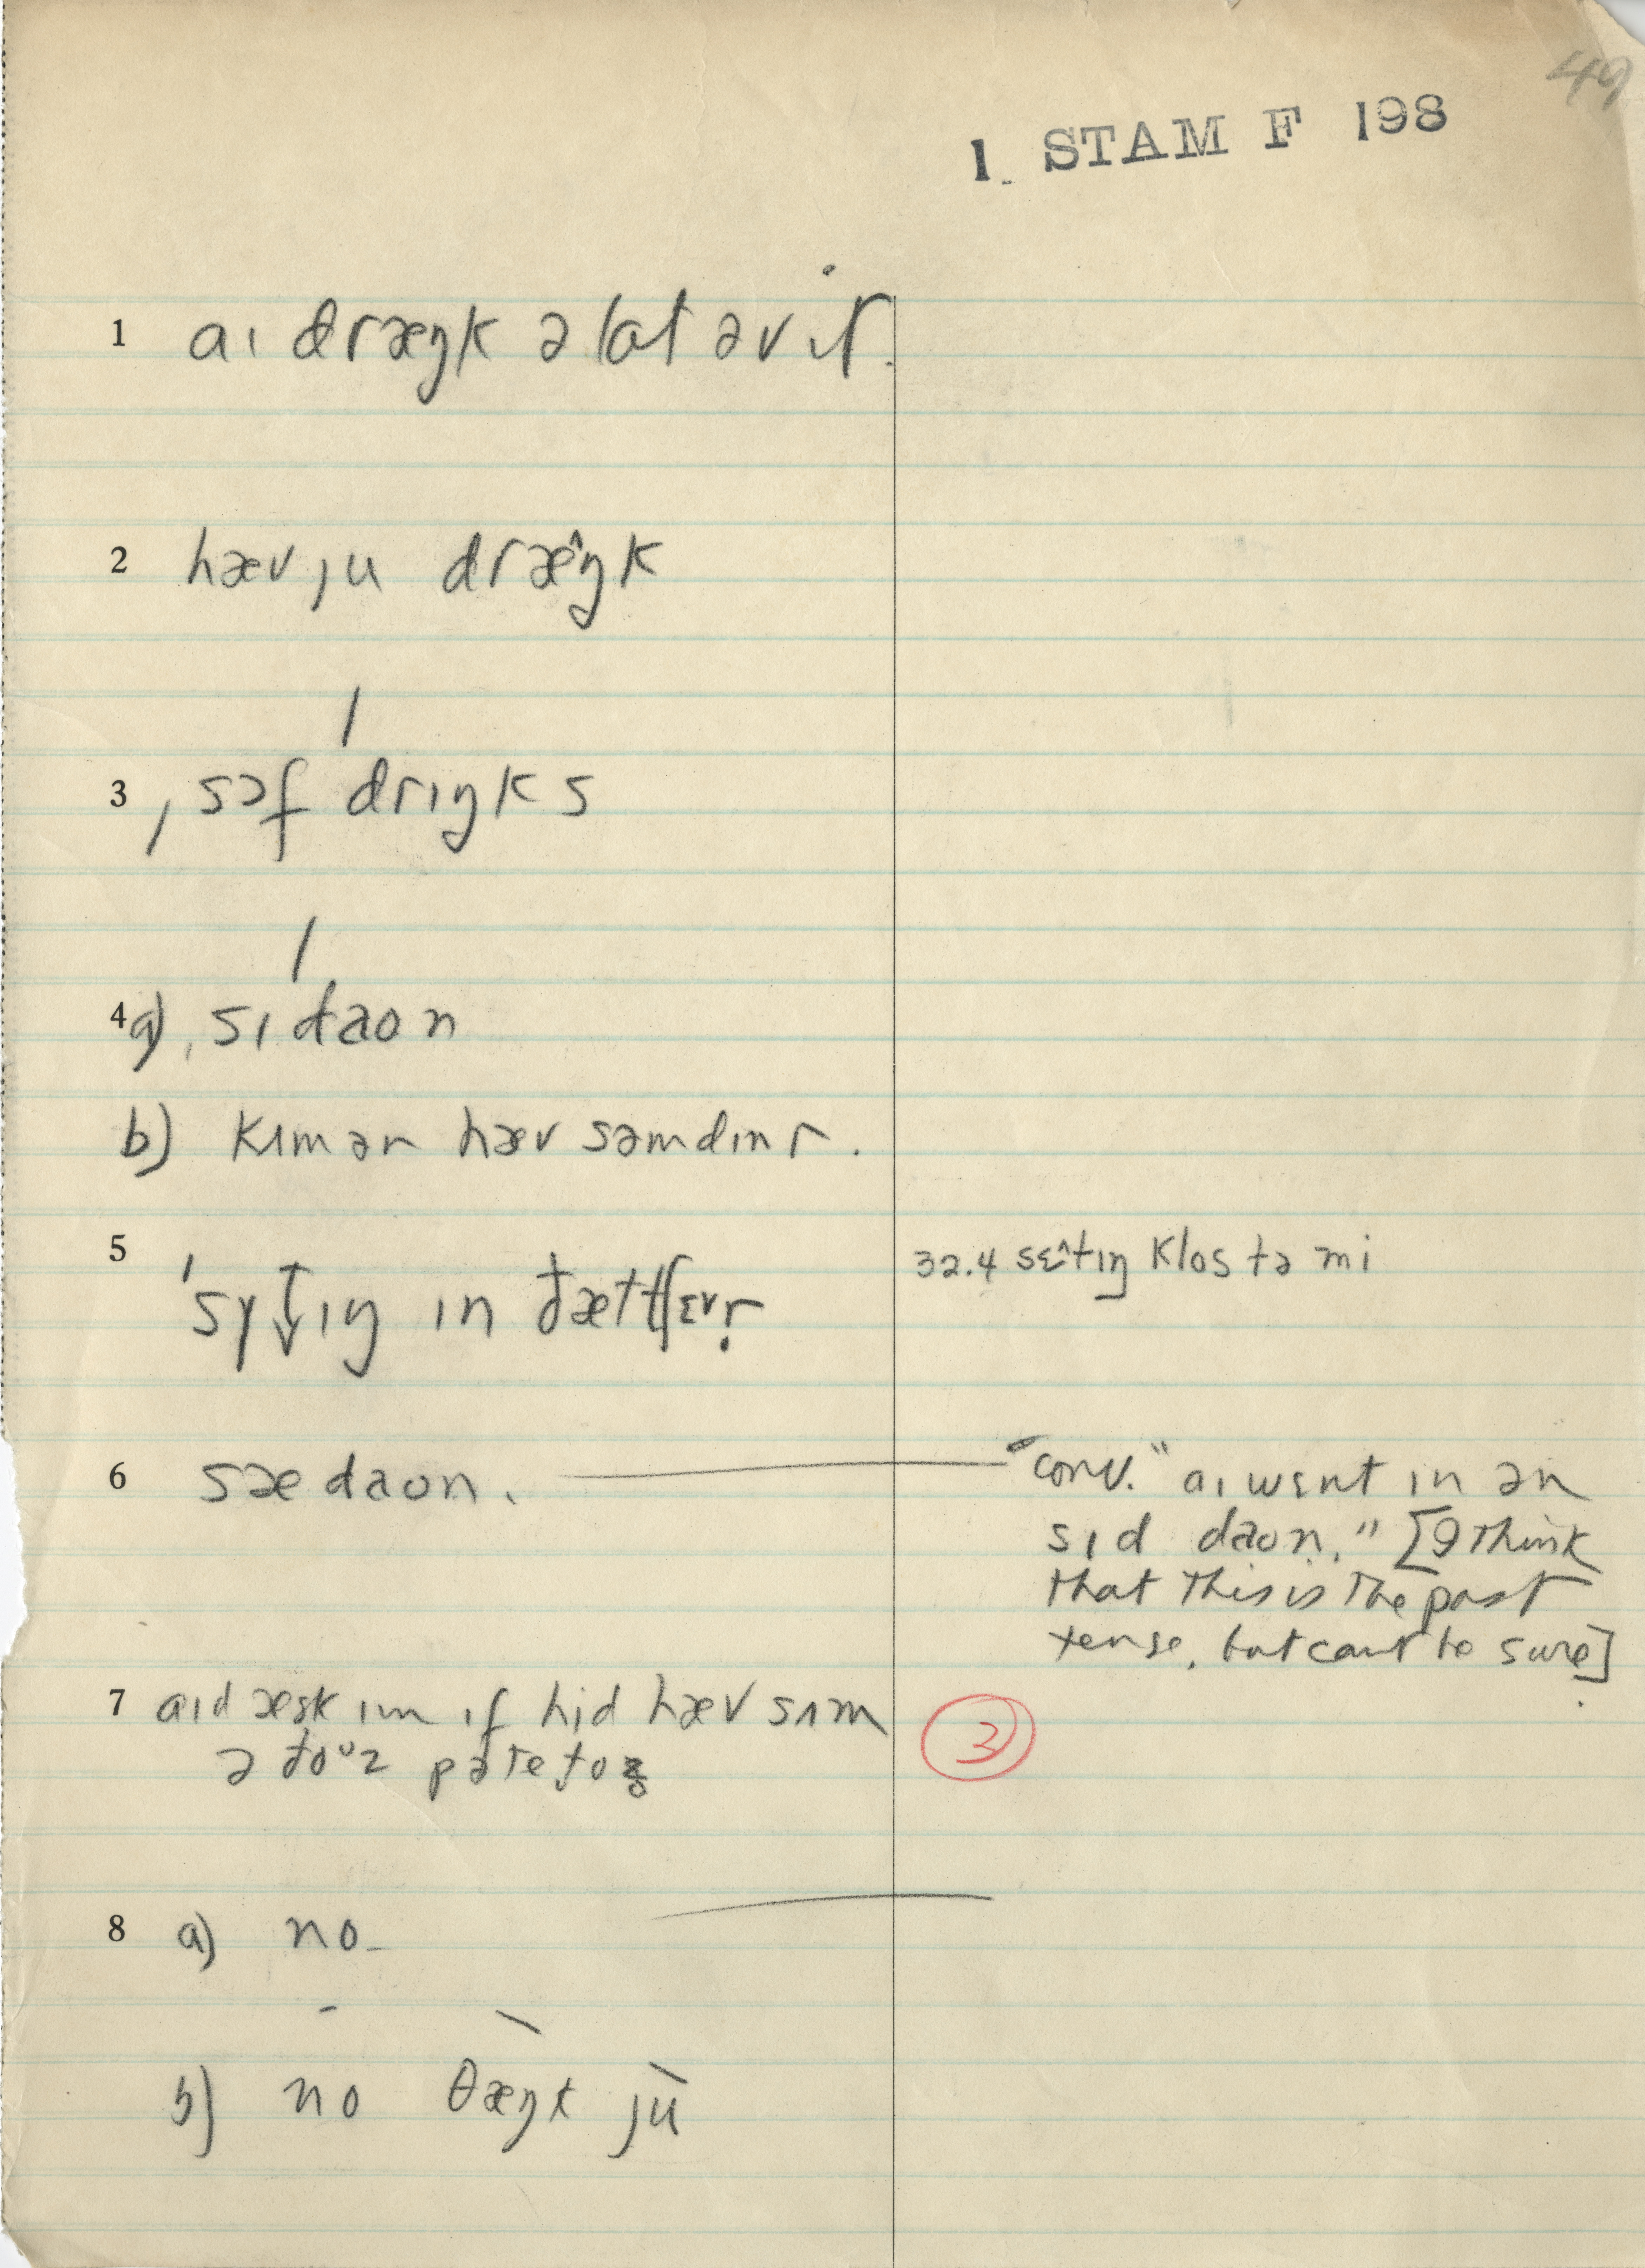 49
1 STAM F 198
1 aɪ dræŋk ə lɑt əv ɪt.
2 hæv ju dræ^ŋk
3 ˌsɔf drɪŋks
4 a) ˌsɪdaon
b) kʌm ən hæv səmdɪnr.
5 ɪn ðæt tʃɛvr
32.4 sɛ^tɪŋ klos tə mi
6 sæ daon.
"conv." aɪ wɛnt ɪn ən
sɪd daon." [I think
that this is the past
tense, but cant be sure]
7 aɪd æsk ɪm ɪf hid hæv sʌm
ə ðoᵘz pəteto
3
8 a) no
b) no θæŋk ju